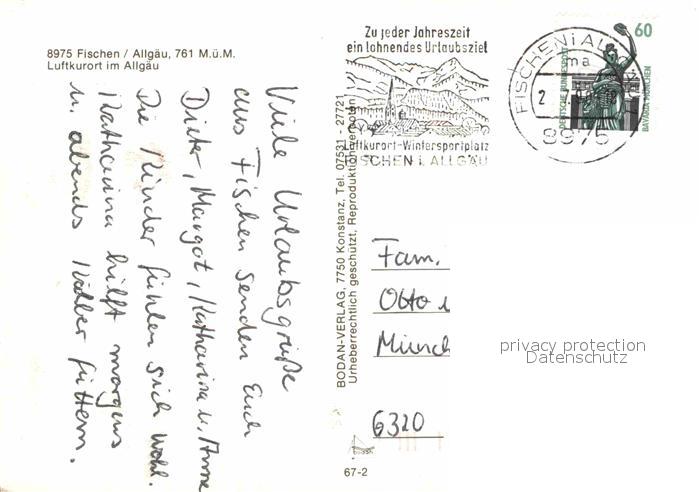 8975 Fischen / Allgäu, 761 M.ü.M.
Luftkurort im Allgäu
Viele Urlaubsgrüße
aus Fischen senden Euch
Dieter, Margot, Katharina u. Anne
Die Kinder fühlen sich wohl.
Katharina hilft morgens
u. abends Kälber füttern.
BODAN-VERLAG, 7750 Konstanz, Tel. 07531 - 27721
Urheberrechtlich geschützt, Reproduktion verboten
Zu jeder Jahreszeit
ein lohnendes Urlaubsziel
Luftkurort-Wintersportplatz
FISCHEN i. ALLGÄU
FISCHEN i ALL
ma
2
8975
60
DEUTSCHE BUNDESPOST
BAVARIA MÜNCHEN
Fam.
Otto
Münch
6320
privacy protection
Datenschutz
67-2